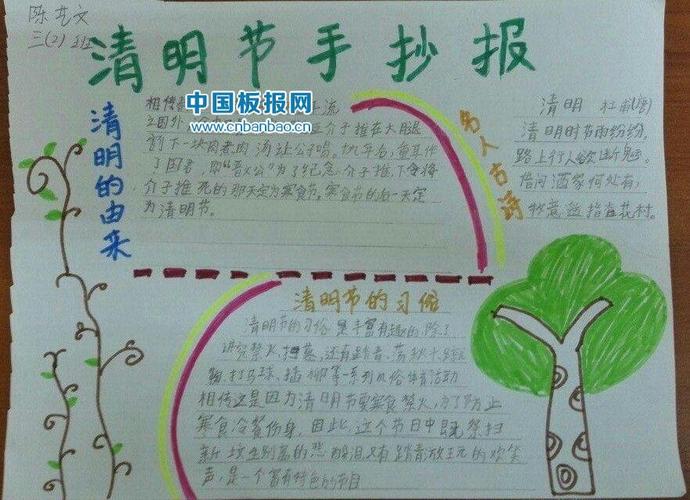 陈艺文
三(2)班
清明节手抄报
中国板报网
www.cnbanbao.cn
清明的由来
相传
介子推在大腿
前下一块肉煮肉汤让公子喝。
了国君，即"晋文公"为了纪念介子推，下令将
介子推死的那天定为寒食节。寒食节的后一天定
为清明节。
名人古诗
清明 杜甫(唐)
清明时节雨纷纷，
路上行人欲断魂。
借问酒家何处有，
牧童遥指杏花村。
清明节的习俗
清明节的习俗是丰富有趣的，除了
讲究禁火、扫墓，还有踏青、荡秋千、蹴
鞠、打马球、插柳等一系列风俗体育活动
相传这是因为清明节要寒食禁火，为了防止
寒食冷餐伤身，因此，这个节日中既有祭扫
新坟生别离的悲酸泪又有踏青放玩的欢笑
声，是一个富有特色的节日